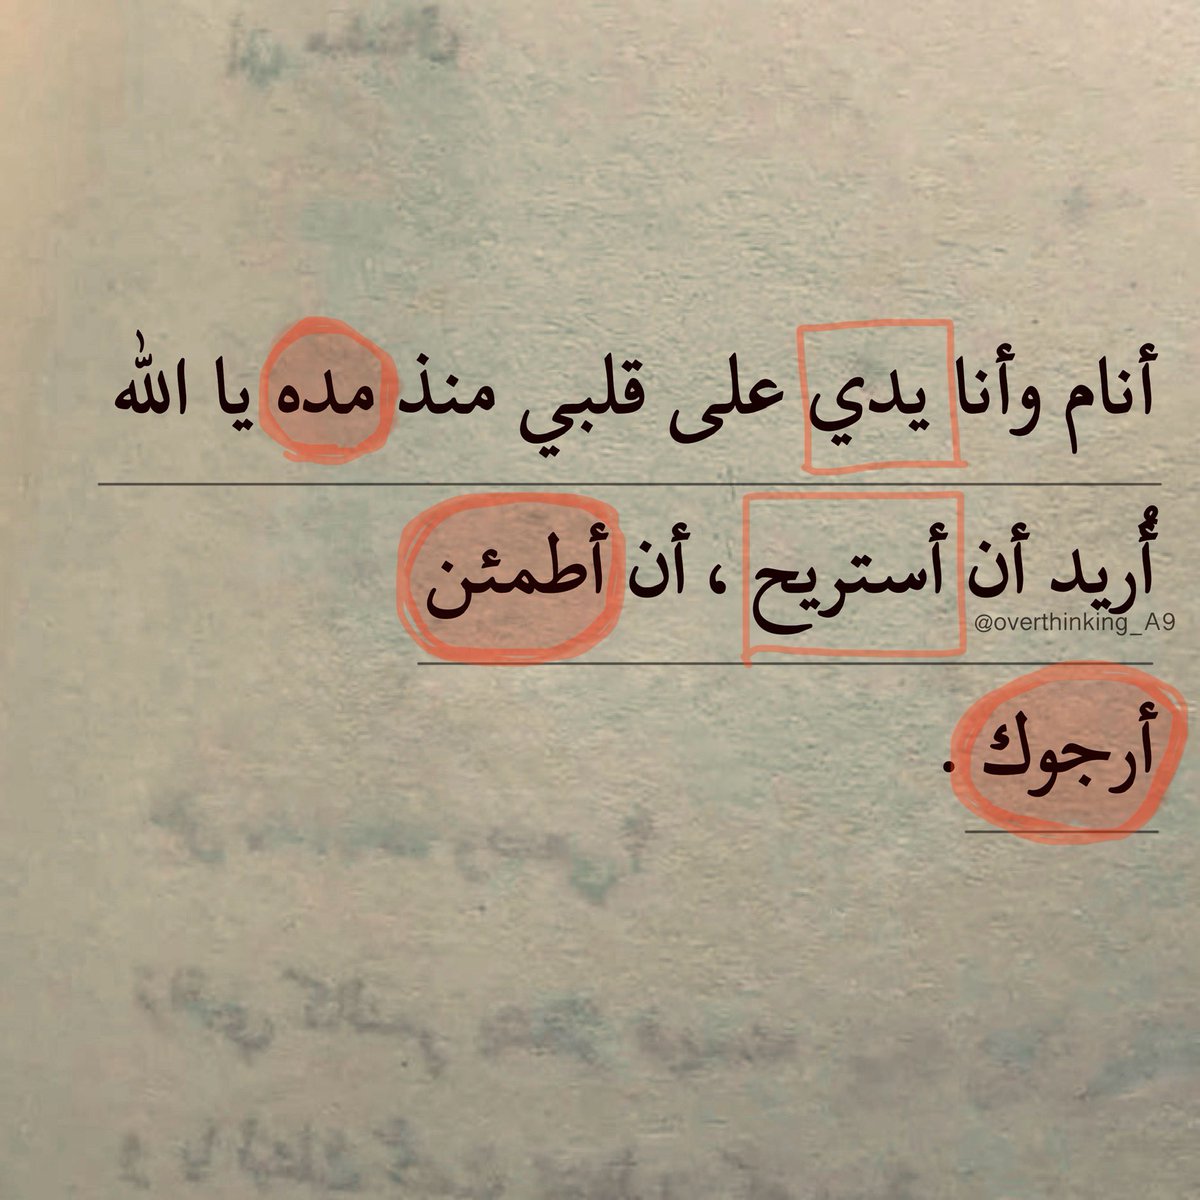 أنام وأنا يدي على قلبي منذ مده يا الله
أُريد أن أستريح ، أن أطمئن
@overthinking_A9
أرجوك .